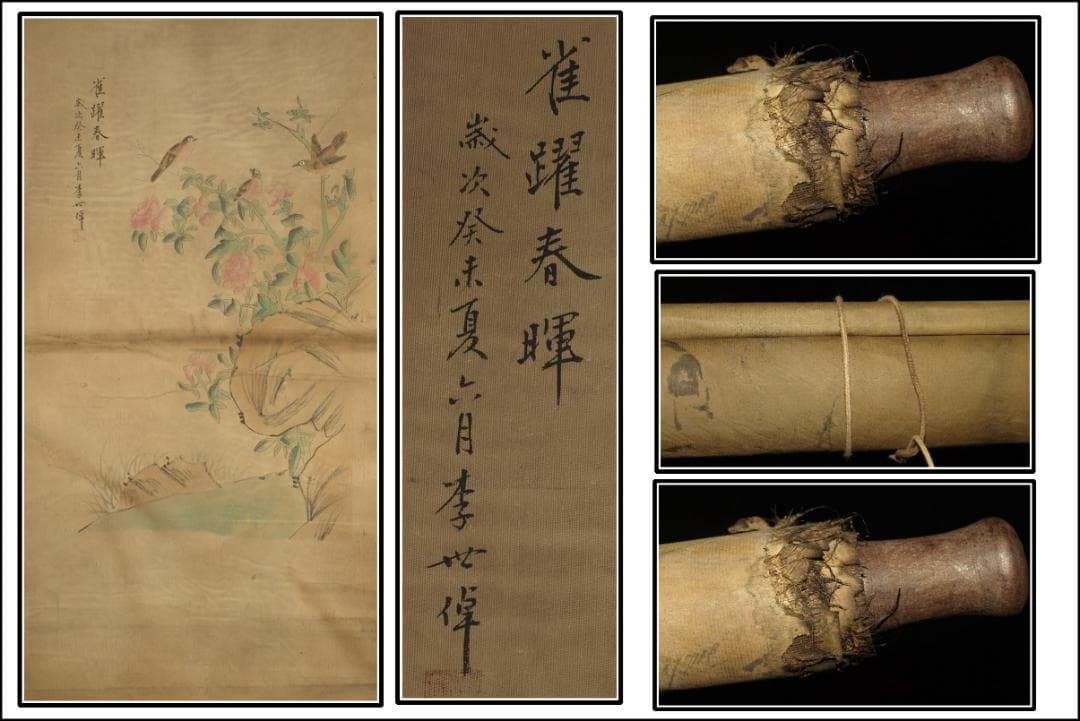 雀躍春暉
歲次癸未夏六月李世倬
雀躍春暉
歲次癸未夏六月李世倬